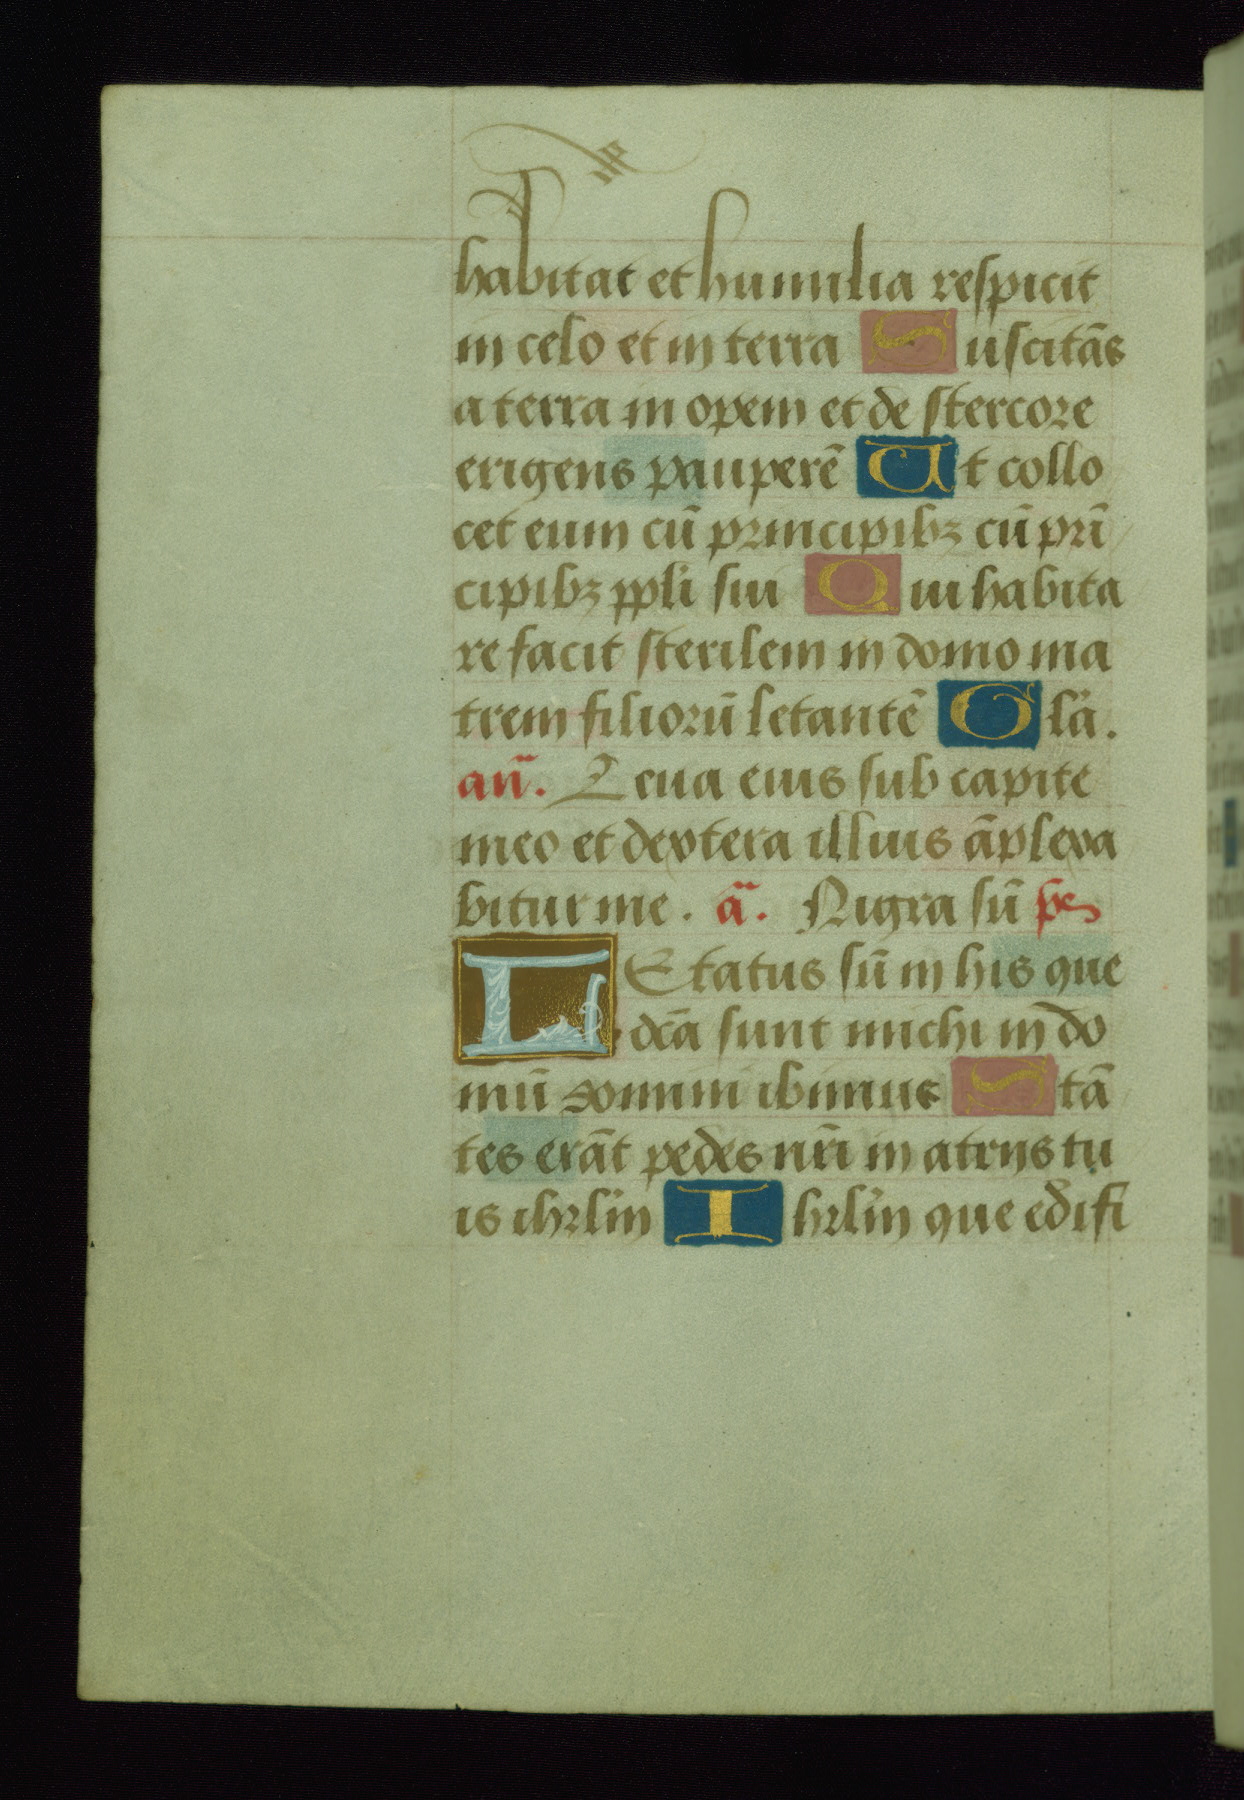 habitat et humilia respicit
in celo et in terra Suscitās
a terra in opem et de stercore
erigens pauperē Ut collo
cet eum cū principibꝫ cū prī
cipibꝫ ppl̄i sui Qui habita
re facit sterilem in domo ma
trem filiorū letantē Glā.
añ. Leua eius sub capite
meo et dextera illius āplexa
bitur me. ā. Nigra sū ps
LEtatus sū in his que
dc̄a sunt michi in do
mū domini ibimus Stā
tes erāt pedes nr̄i in atrijs tu
is ihrl̄m Ihrl̄m que edifi